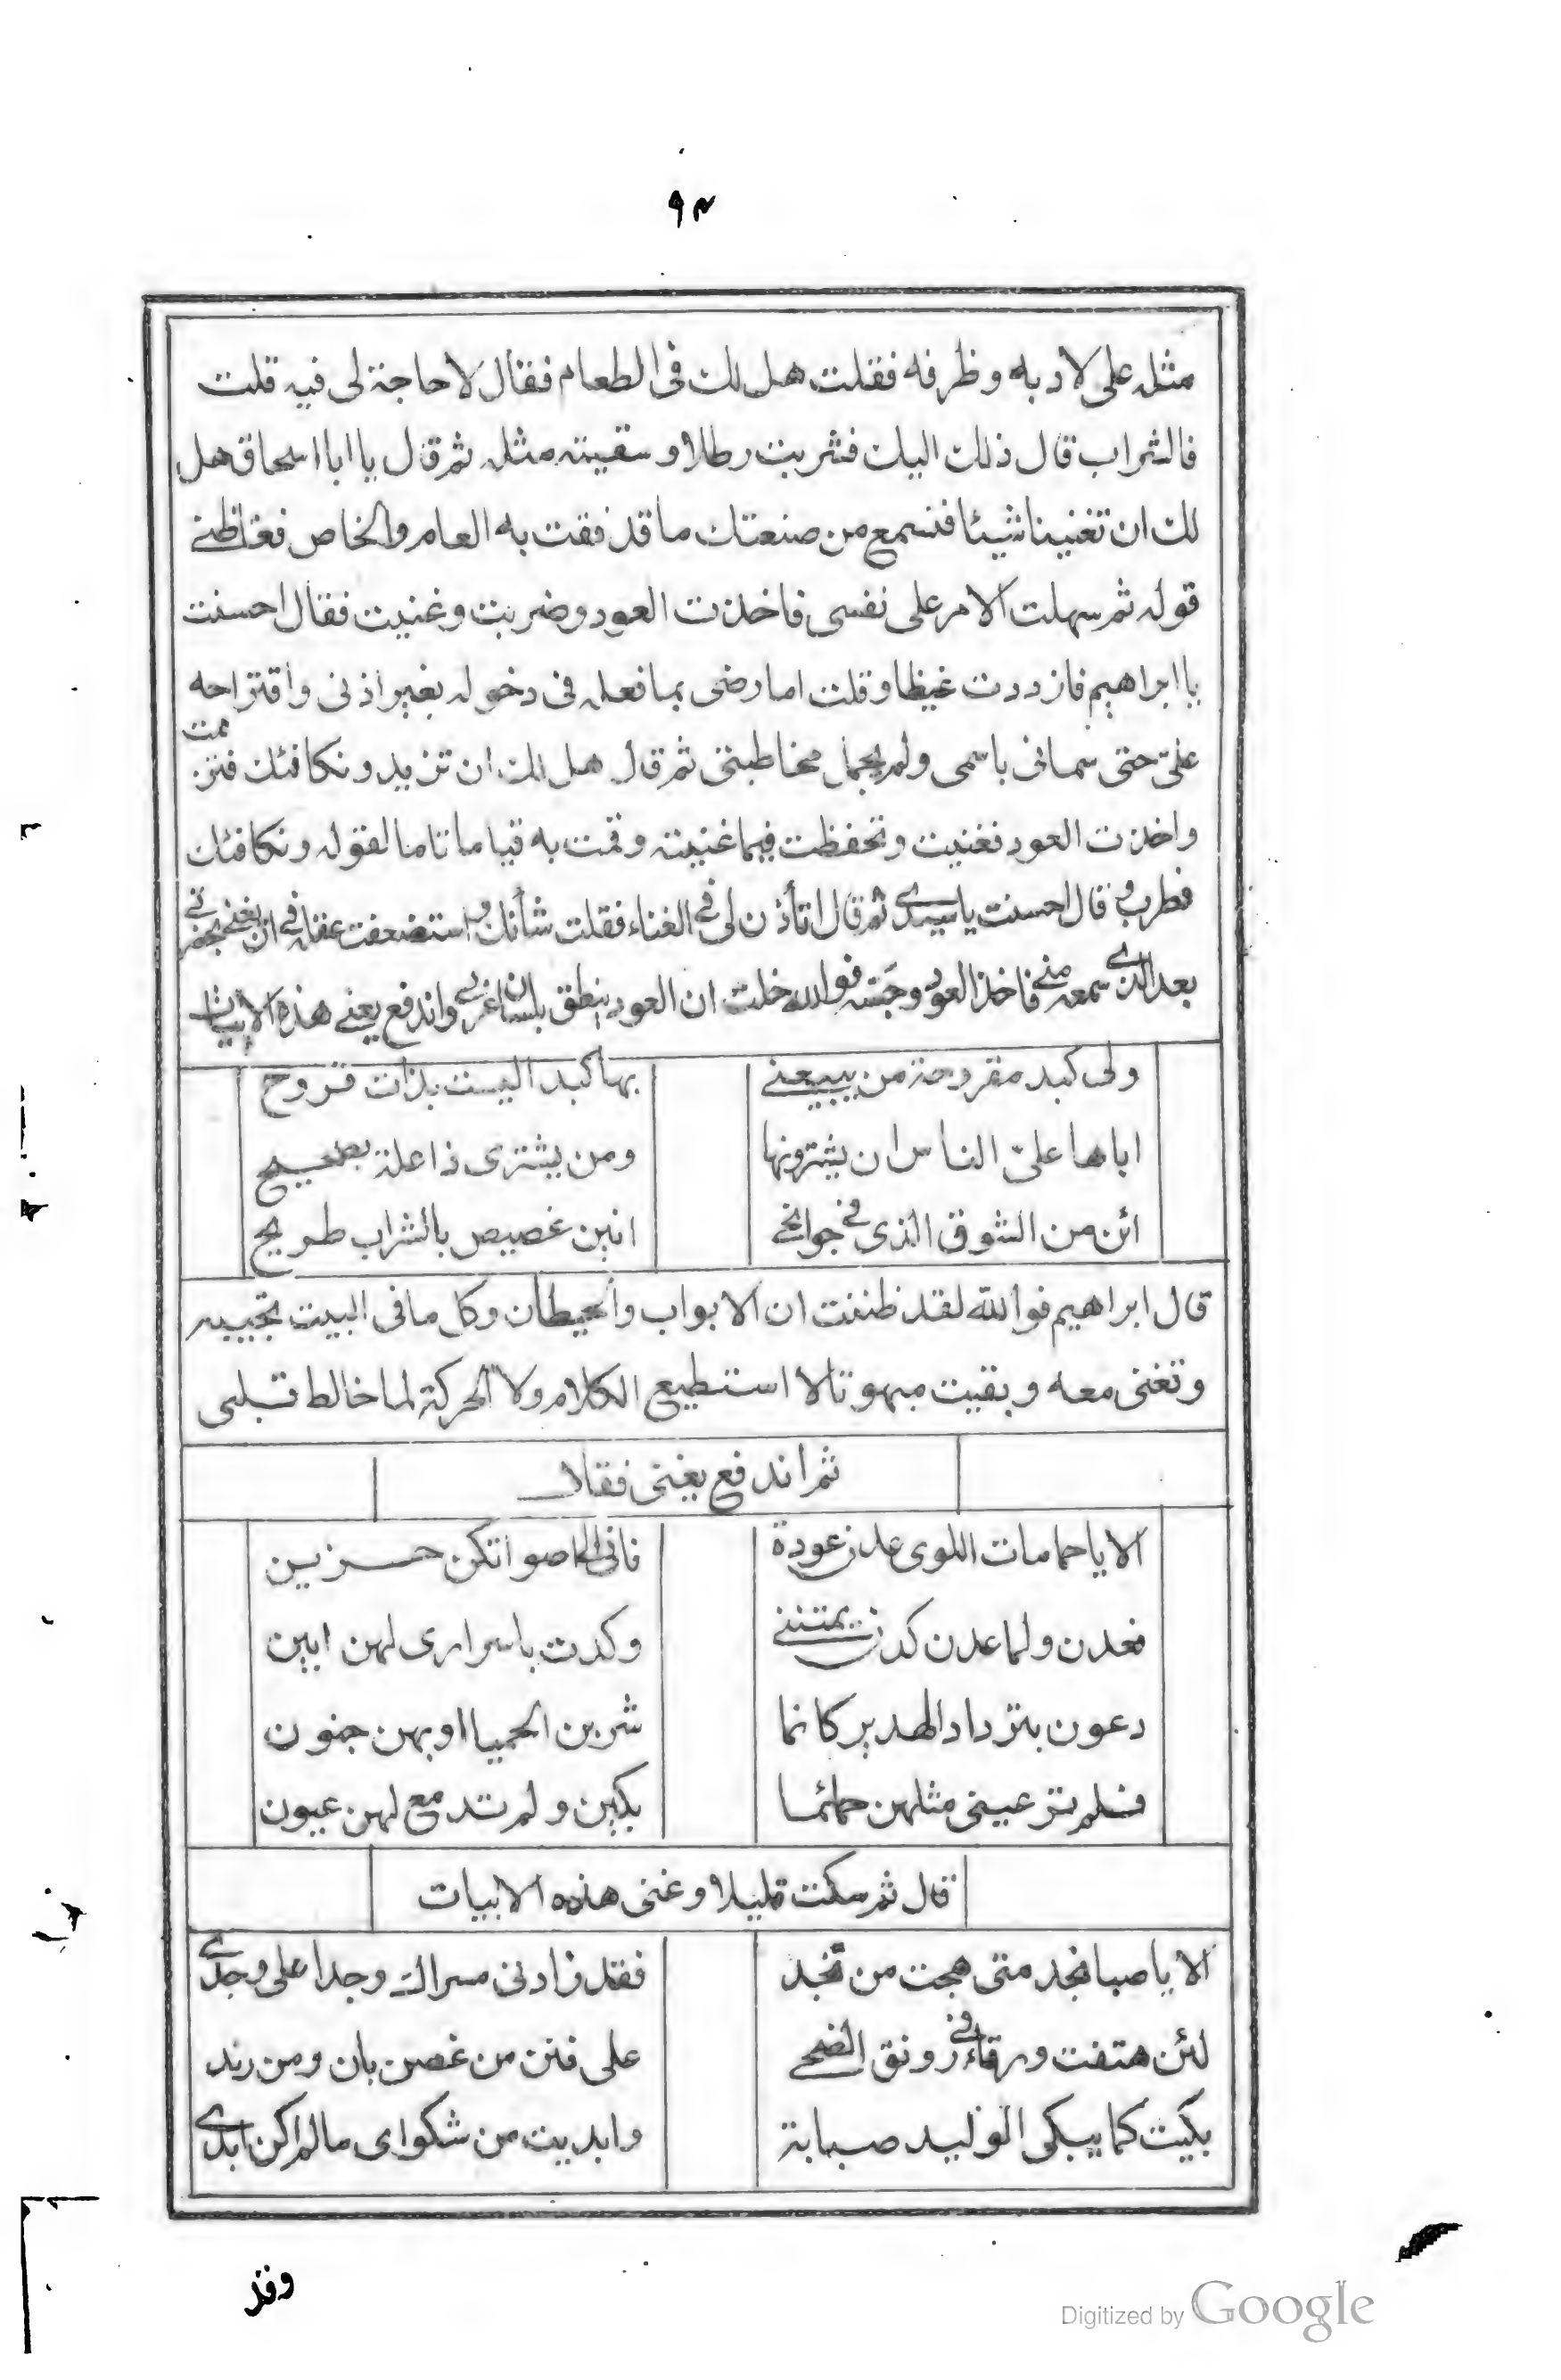 ٩٤
مثله على لادبه وظرفه فقلت هل لك فى الطعام فقال لا حاجة لى فيه قلت
فالشراب قال ذلك اليك فشربت رطلا وسقيته مثله ثم قال يا ابا اسحاق هل
لك ان تغنينا شيئا فنسمع من صنعتك ما قد فقت به العام والخاص فغاظنى
قوله ثم سهلت الامر على نفسى فاخذت العود وضربت وغنيت فقال احسنت
يا ابراهيم فازددت غيظا وقلت اما رضى بما فعله فى دخوله بغير اذنى واقتراحه
علىّ حتى سمانى باسمى ولم يجمل مخاطبتى ثم قال هل لك ان تزيد ونكافئك فتزممت
واخذت العود فغنيت وتحفظت فيما غنيته وقمت به قياما تاما لقوله ونكافئك
فطرب وقال احسنت يا سيدى ثم قال اتأذن لى فى الغناء فقلت شأنك واستضعفت عقله فى ان يغنى بحضرتى
بعد الذى سمعه منى فاخذ العود وجسّه فوالله خلت ان العود ينطق بلسان عربى واندفع يغنى هذه الابيات
ولى كبد مقروحة من يبيعنى بها كبدا ليست بذات قروح
اباها علىّ الناس ان يشترونها ومن يشترى ذا علة بصحيح
ائن من الشوق الذى فى جوانحى انين غصيص بالشراب طريح
قال ابراهيم فوالله لقد ظننت ان الابواب والحيطان وكل ما فى البيت تجيبه
وتغنى معه وبقيت مبهوتا لا استطيع الكلام ولا الحركة لما خالط قلبى
ثم اندفع يغنى فقال
الا يا حمامات اللوى عدن عودة فانى الى اصواتكن حزين
فعدن ولما عدن كدن يمتننى وكدت باسرارى لهن ابين
دعون بترداد الهدير كانما شربن الحميا او بهن جنون
فلم تر عينى مثلهن حمائما بكين ولم تدمع لهن عيون
قال ثم سكت قليلا وغنى هذه الابيات
الا يا صبا نجد متى هجت من نجد فقد زادنى مسراك وجدا على وجدى
لئن هتفت ورقاء فى رونق الضحى على فنن من غصن بان ومن رند
بكيت كما يبكى الوليد صبابة وابديت من شكواى ما لم اكن ابدى
وقد
Digitized by Google